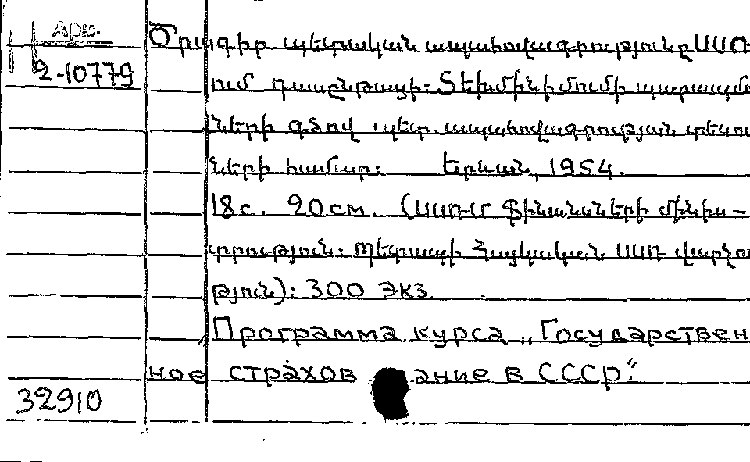 Арм.
2-10779
Ծրագիր պետական ապահովագրությունը ՍՍՌ
ում դասընթացի: Տեխմինիմումի պարապմունք
ների գծով պետ. ապահովագրության տեսուչ
ների համար: Երևան, 1954.
18с. 20см. (ՍՍՌՄ Ֆինանսների մինիս-
տրություն: Պետապի Հայկական ՍՍՌ վարչու
թյուն): 300 экз.
Программа курса „Государствен
ное страхов ание в СССР".
32910